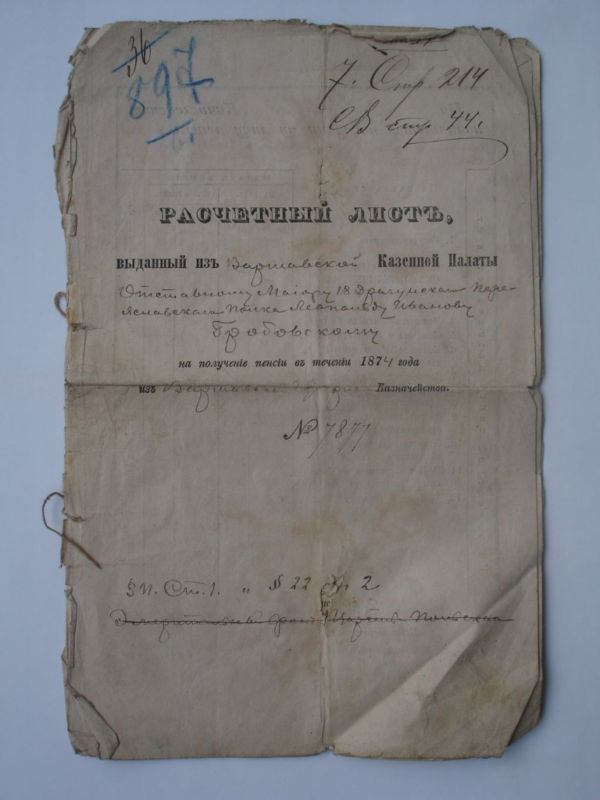 36
897
7. Стр. 214
СВ стр. 44.
РАСЧЕТНЫЙ ЛИСТЪ,
выданный изъ Варшавской Казенной Палаты
Отставному Маіору 18 Драгунскаго Пере-
яславскаго Полка Леопольду Иванову
Гробовскому
на полученіе пенсіи въ теченіи 1874 года
изъ Казначейства.
№ 7877
§ п. Ст. 1. „ § 22 2
Царства Польскаго